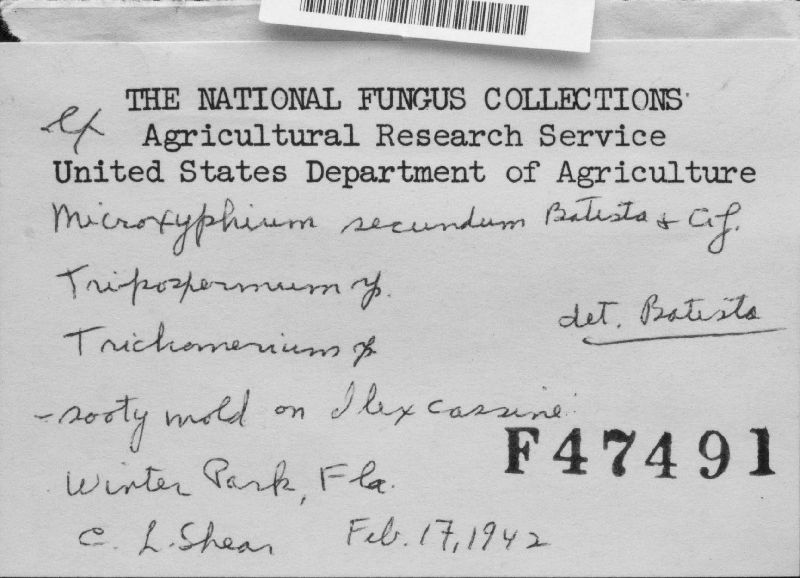 THE NATIONAL FUNGUS COLLECTIONS
ex Agricultural Research Service
United States Department of Agriculture
Microxyphium secundum Batista & Cif.
Tripospermum sp.
det. Batista
Trichomerium sp
- sooty mold on Ilex cassine
F47491
Winter Park, Fla.
C. L. Shear Feb. 17, 1942